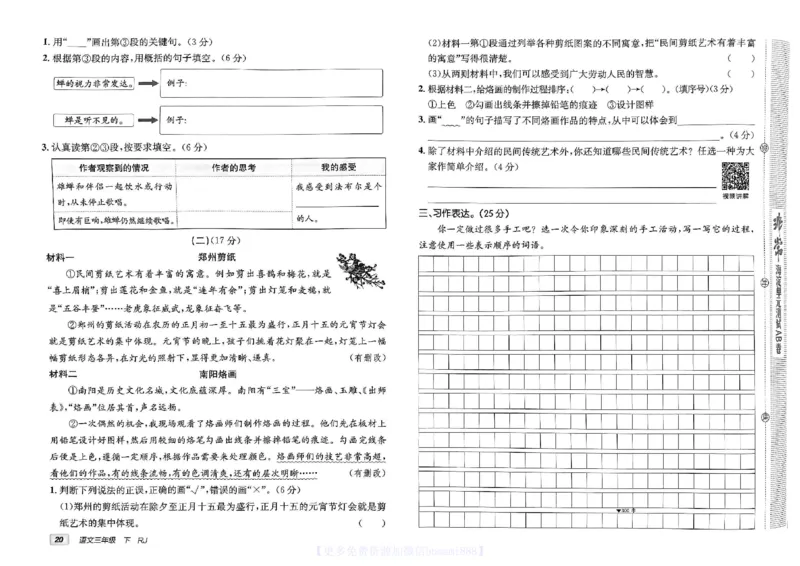 1. 用“____”画出第③段的关键句。(3分)
2. 根据第③段的内容,用概括的句子填空。(6分)
蝉的视力非常发达。 例子:
蝉是听不见的。 例子:
3. 认真读第②③段,按要求填空。(6分)
作者观察到的情况 作者的思考 我的感受
雄蝉和伴侣一起饮水或行动时,从未停止歌唱。
即使有巨响,雄蝉仍然继续歌唱。
我感受到法布尔是个____________的人。
(二)(17分)
材料一 郑州剪纸
①民间剪纸艺术有着丰富的寓意。例如剪出喜鹊和梅花,就是
“喜上眉梢”;剪出莲花和金鱼,就是“连年有余”;剪出灯笼和麦穗,就
是“五谷丰登”……老虎象征威武,龙象征奋飞等。
②郑州的剪纸活动在农历的正月初一至十五最为盛行,正月十五的元宵节灯会
就是剪纸艺术的集中体现。元宵节的晚上,孩子们挑着花灯聚在一起,灯笼上一幅
幅剪纸形态各异,在灯光的照射下,显得更加清晰、逼真。 (有删改)
材料二 南阳烙画
①南阳是历史文化名城,文化底蕴深厚。南阳有“三宝”——烙画、玉雕、《出师
表》,“烙画”位居其首,声名远扬。
②一次偶然的机会,我现场观看了烙画师们制作烙画的过程。他们先在板材上
用铅笔设计好图样,然后用较细的烙笔勾画出线条并擦掉铅笔的痕迹。勾画完线条
后便是上色,遵循一定顺序,根据作品需要来处理颜色。烙画师们的技艺非常高超,
看他们的作品,有的线条流畅,有的色调清爽,还有的层次明晰…… (有删改)
1. 判断下列说法的正误,正确的画“√”,错误的画“×”。(6分)
(1)郑州的剪纸活动在除夕至正月十五最为盛行,正月十五的元宵节灯会就是剪
纸艺术的集中体现。 ( )
20 语文三年级 下 RJ
(2)材料一第①段通过列举各种剪纸图案的不同寓意,把“民间剪纸艺术有着丰富
的寓意”写得很清楚。 ( )
(3)从两则材料中,我们可以感受到广大劳动人民的智慧。 ( )
2. 根据材料二,给烙画的制作过程排序:( )→( )→( )。(填序号)(3分)
①上色 ②勾画出线条并擦掉铅笔的痕迹 ③设计图样
3. 画“﹏﹏”的句子描写了不同烙画作品的特点,从中可以体会到____________
____________。(4分)
4. 除了材料中介绍的民间传统艺术外,你还知道哪些民间传统艺术?任选一种为大
家作简单介绍。(4分)
视频讲解
三、习作表达。(25分)
你一定做过很多手工吧?选一次令你印象深刻的手工活动,写一写它的过程,
注意使用一些表示顺序的词语。
▼300字
海淀单元测试AB卷